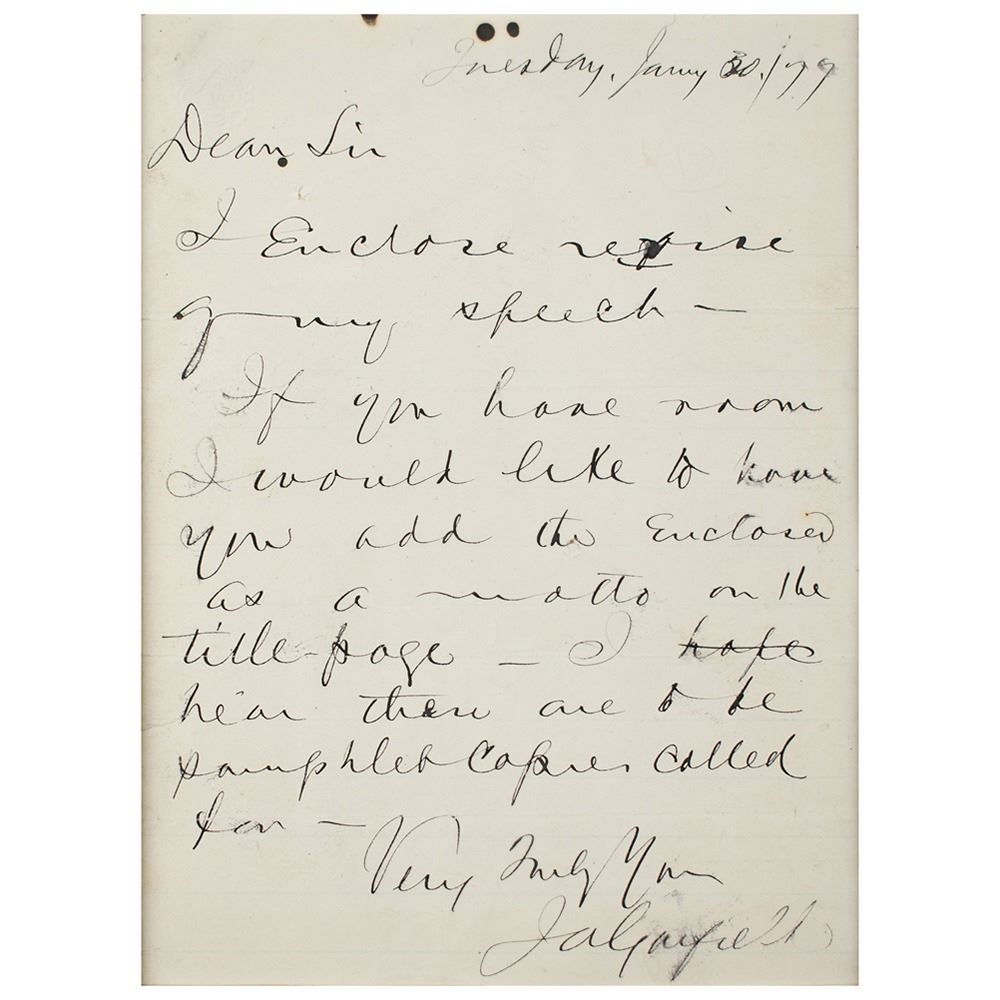 Tuesday, Jany 30. /77
Dear Sir
I Enclose revise
of my speech –
If you have room
I would like to have
you add the Enclosed
as a motto on the
title-page – I hope
hear there are to be
pamphlet Copies called
for –
Very Truly Yours
J A Garfield